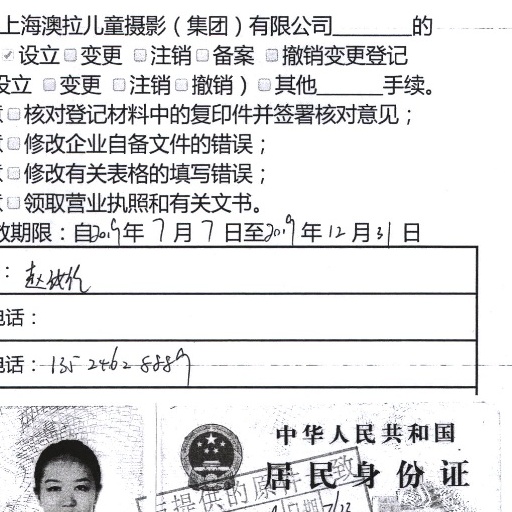 上海澳拉儿童摄影（集团）有限公司______的
设立 变更 注销 备案 撤销变更登记
设立 变更 注销 撤销）其他______手续。
核对登记材料中的复印件并签署核对意见；
修改企业自备文件的错误；
修改有关表格的填写错误；
领取营业执照和有关文书。
效期限：自2019年7月7日至2019年12月31日
：赵
电话：
电话：135 2462 8889
中华人民共和国
居民身份证
提供的原件一致